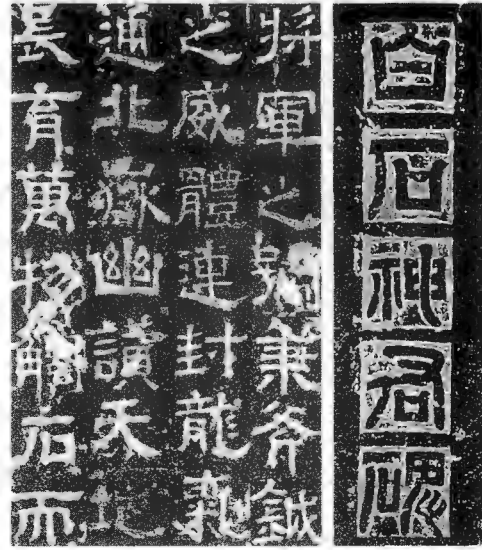 白石神君碑
將軍之號秉斧鉞
之威體連封龍氣
通北嶽幽讚天地
長育萬物觸石而